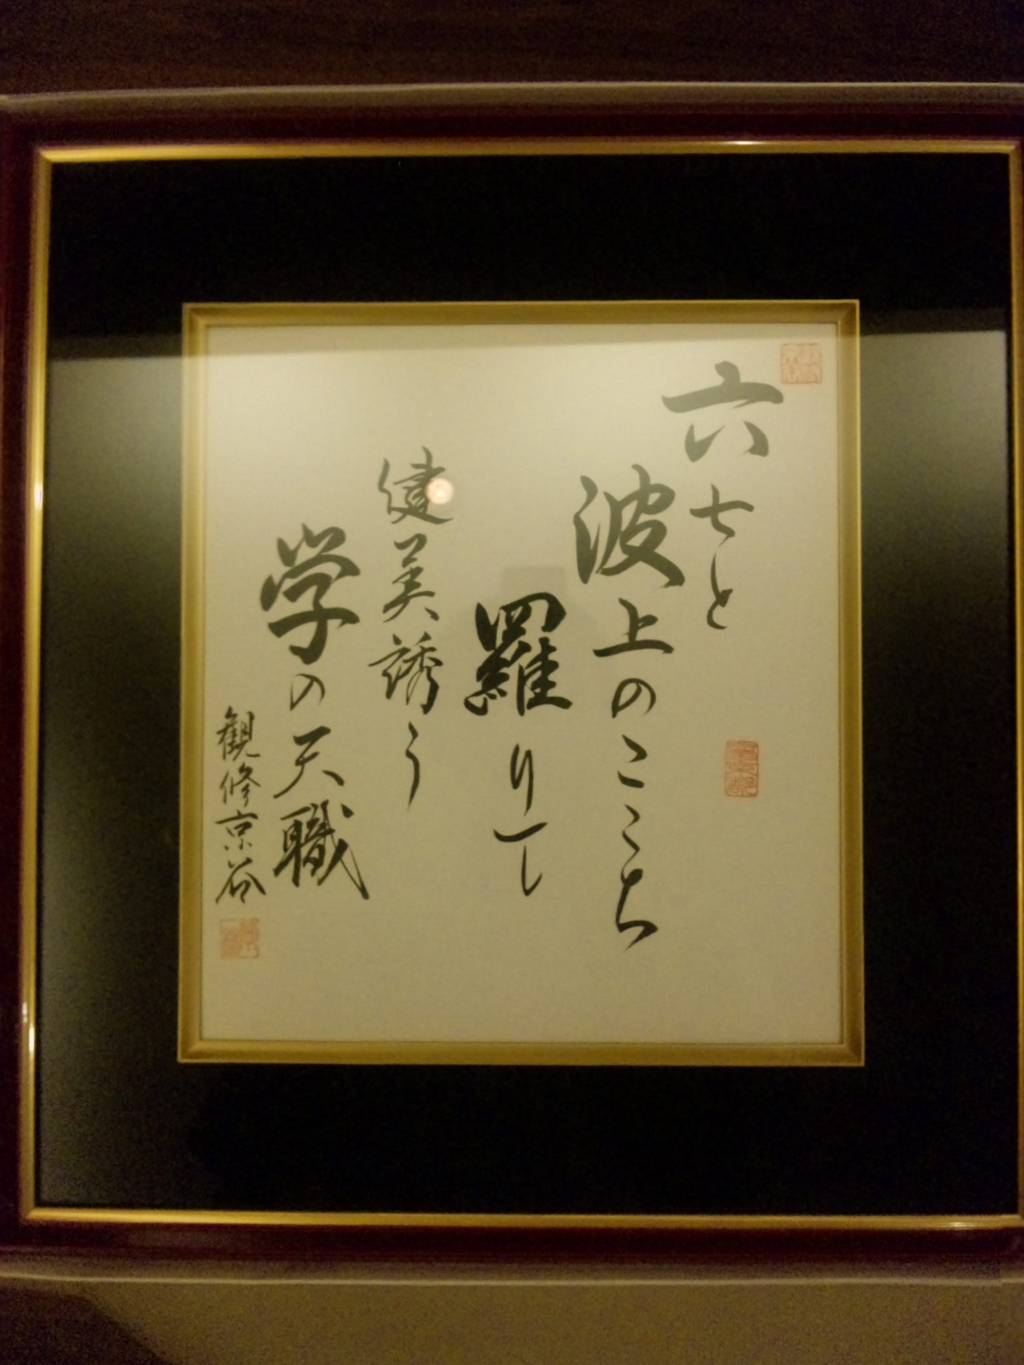 六七と
波上のこゝち
羅りーし
健美誘う
学の天職
観修京谷